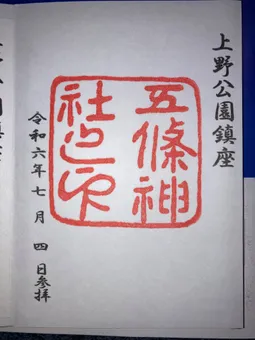 上野公園鎮座
五條神
社之印
令和六年七月四日参拝